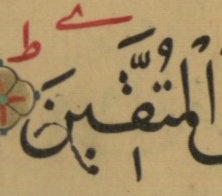 الْمُتَّقِينَ ط